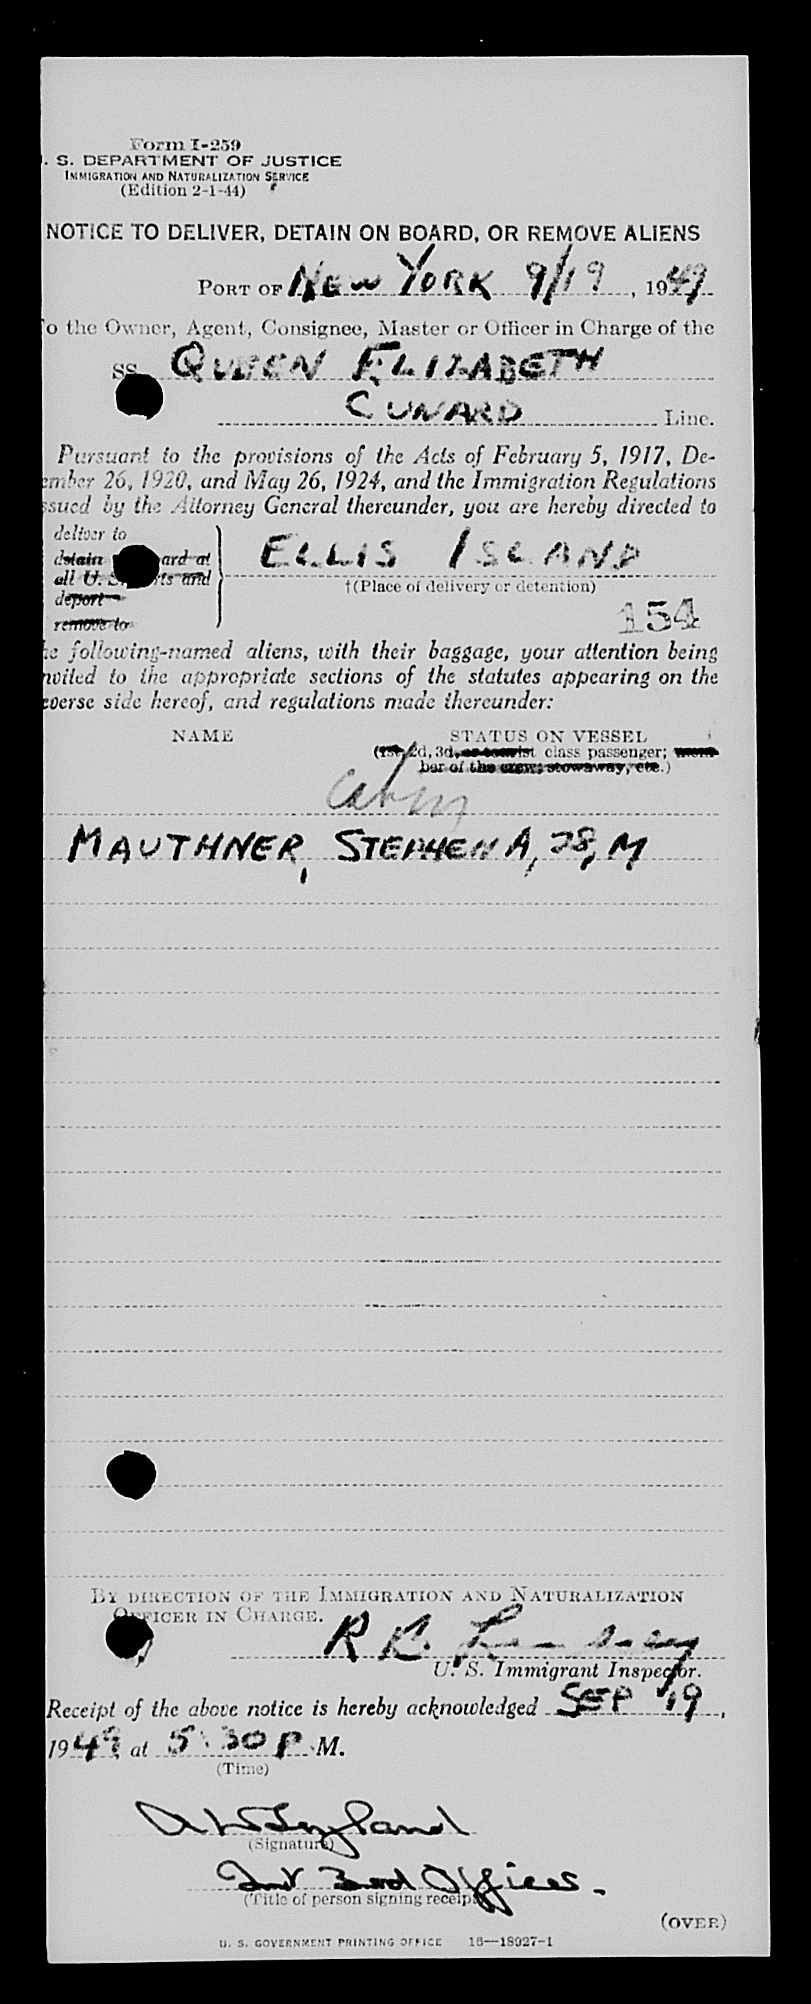 Form I-259
. S. DEPARTMENT OF JUSTICE
IMMIGRATION AND NATURALIZATION SERVICE
(Edition 2-1-44)
NOTICE TO DELIVER, DETAIN ON BOARD, OR REMOVE ALIENS
PORT OF NEW YORK 9/19, 1949
o the Owner, Agent, Consignee, Master or Officer in Charge of the
SS QUEEN ELIZABETH
CUNARD Line.
Pursuant to the provisions of the Acts of February 5, 1917, De-
ember 26, 1920, and May 26, 1924, and the Immigration Regulations
ssued by the Attorney General thereunder, you are hereby directed to
deliver to
detain ard at
all U. S. rts and
deport
remove to
ELLIS ISLAND
†(Place of delivery or detention)
154
he following-named aliens, with their baggage, your attention being
nvited to the appropriate sections of the statutes appearing on the
everse side hereof, and regulations made thereunder:
NAME STATUS ON VESSEL
(1st, 2d, 3d, or tourist class passenger; mem-
ber of the crew; stowaway, etc.)
Cabin
MAUTHNER, STEPHEN A, 28, M
BY DIRECTION OF THE IMMIGRATION AND NATURALIZATION
OFFICER IN CHARGE.
R
U. S. Immigrant Inspector.
Receipt of the above notice is hereby acknowledged SEP 19,
1949 at 5:30 P. M.
(Time)
(Signature)
Officer.
(Title of person signing receipt)
(OVER)
U. S. GOVERNMENT PRINTING OFFICE 16—18927-1